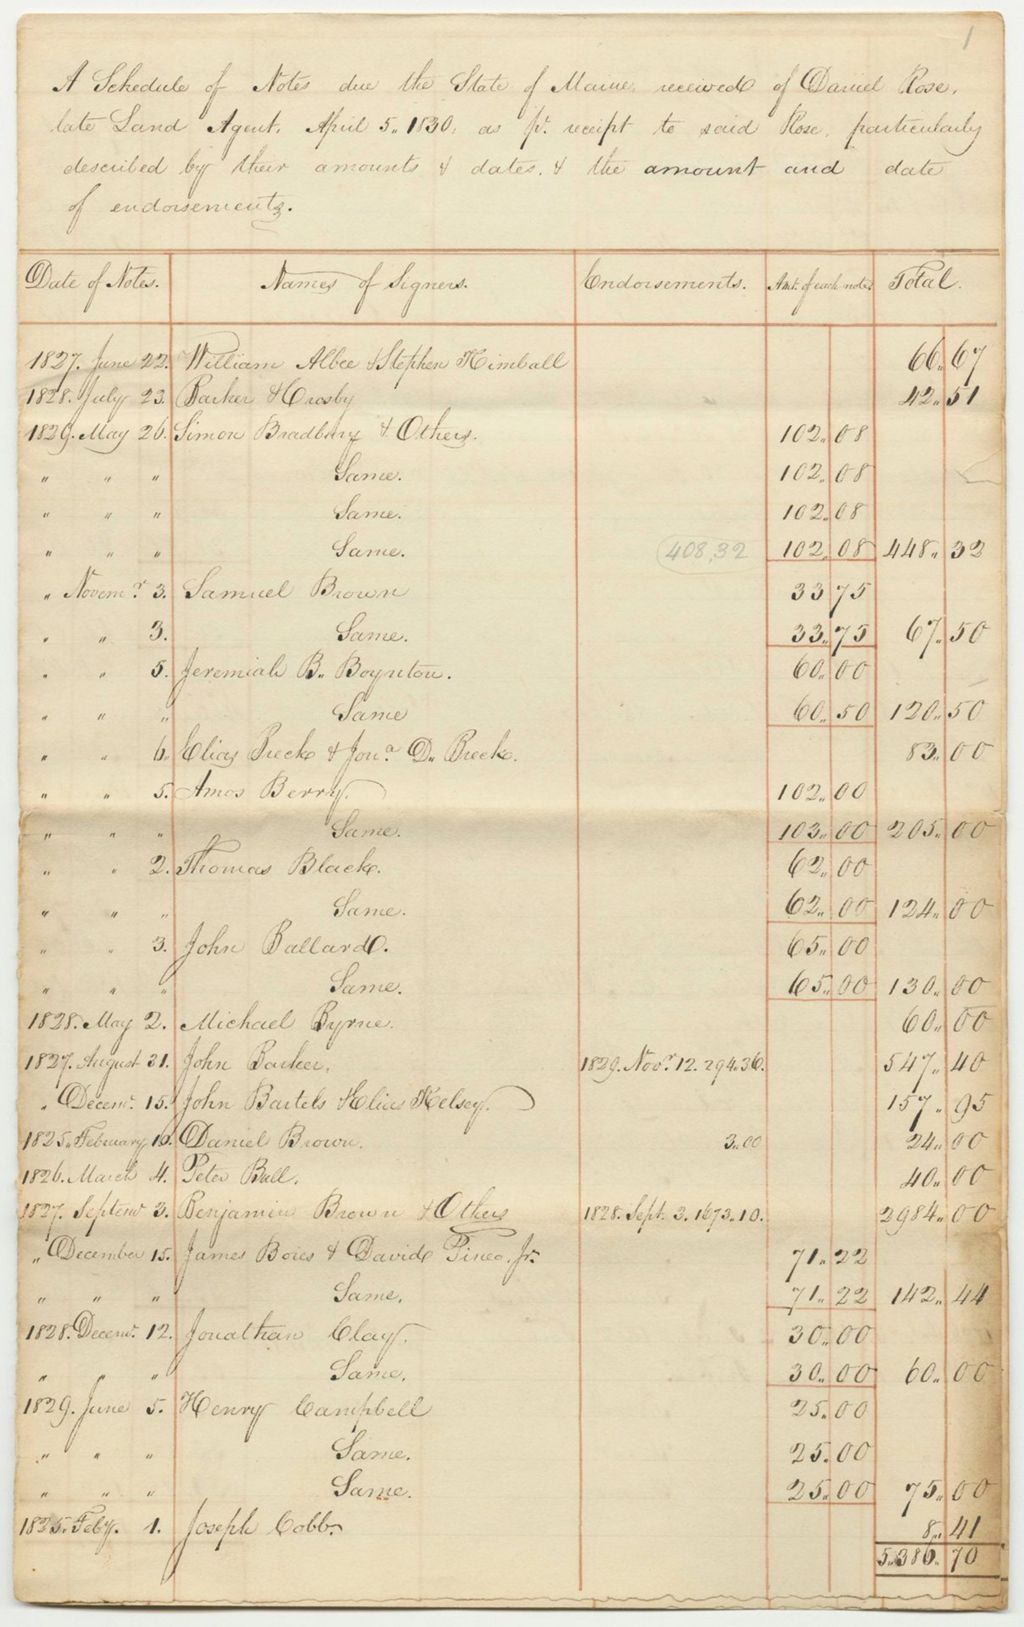 1
A Schedule of Notes due the State of Maine, received of Daniel Rose,
late Land Agent, April 5,, 1830, as pr. receipt to said Rose, particularly
described by their amounts & dates, & the amount and date
of endorsements.
Date of Notes. Names of Signers. Endorsements. Amt. of each note. Total.
1827. June 22. William Albee & Stephen Kimball 66,, 67
1828. July 23. Barker & Crosby 42,, 51
1829. May 26. Simon Bradbury & Others. 102,, 08
" " " Same. 102,, 08
" " " Same. 102,, 08
" " " Same. 408,32 102,, 08 448,, 32
" Novemr. 3. Samuel Brown 33 75
" " 3. Same. 33,, 75 67,, 50
" " 5. Jeremiah B,, Boynton. 60,, 00
" " " Same 60,, 50 120,, 50
" " 6. Elias Breck & Jona. D,, Breck. 83,, 00
" " 5. Amos Berry. 102,, 00
" " " Same. 103,, 00 205,, 00
" " 2. Thomas Black. 62,, 00
" " " Same. 62,, 00 124,, 00
" " 3. John Ballard. 65,, 00
" " " Same. 65,, 00 130,, 00
1828. May 2. Michael Byrne. 60,, 00
1827. August 31. John Barker. 1829. Novr. 12. 294.36. 547,, 40
" Decemr. 15. John Bartels & Elias Kelsey. 157,, 95
1825. February 10. Daniel Brown. 3.00 24,, 00
1826. March 4. Peter Ball. 40,, 00
1827. Septemr 3. Benjamin Brown & Others 1828. Sept. 3. 1673.10. 2984,, 00
" December 15. James Boies & David Pineo. Jr. 71,, 22
" " " Same. 71,, 22 142,, 44
1828. Decemr. 12. Jonathan Clay. 30,, 00
" " " Same. 30,, 00 60,, 00
1829. June 5. Henry Campbell 25,, 00
" " " Same. 25,, 00
" " " Same. 25,, 00 75,, 00
1825. Feby. 1. Joseph Cobb. 8,, 41
5,,386,, 70